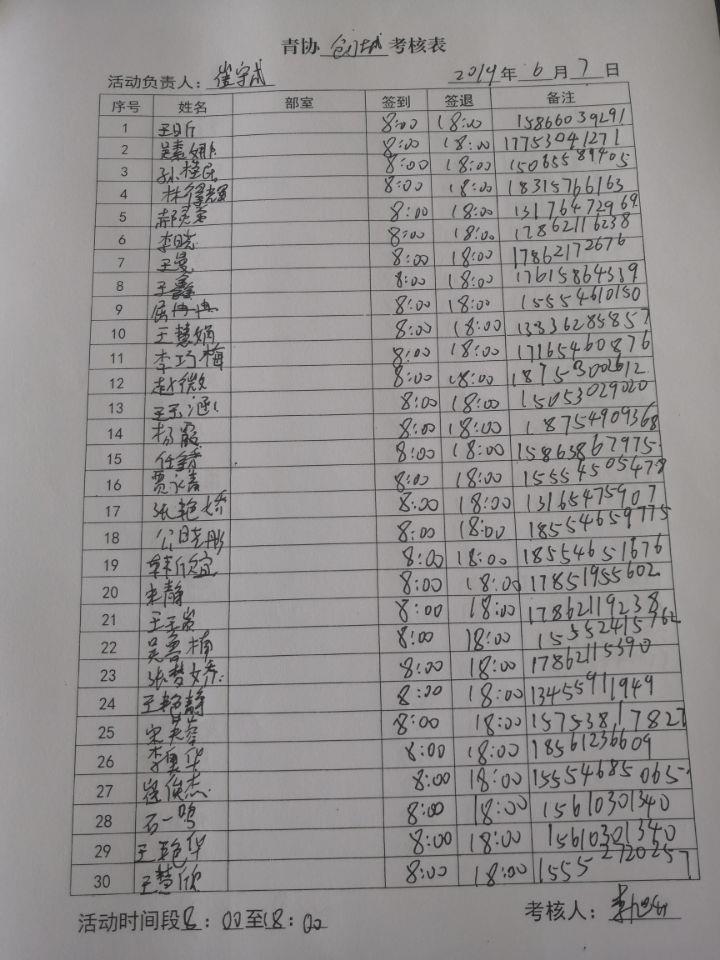 青协 创城 考核表
活动负责人：崔宇成 2019年6月7日
序号 姓名 部室 签到 签退 备注
1 8:00 18:00 15866039291
2 吴慧娜 8:00 18:00 17753041271
3 孙桂民 8:00 18:00 15065589405
4 林得耀 8:00 18:00 18315766163
5 郝灵霞 8:00 18:00 13176472969
6 李晓 8:00 18:00 17862116238
7 王曼 8:00 18:00 17862172676
8 王鑫 8:00 18:00 17615864339
9 屈冉冉 8:00 18:00 15554610150
10 王慧娟 8:00 18:00 13836285857
11 李巧梅 8:00 18:00 17165460876
12 赵微 8:00 18:00 18753002612
13 王玉涵 8:00 18:00 15053029020
14 杨霞 8:00 18:00 18754909368
15 任鑫 8:00 18:00 15863867975
16 贾永春 8:00 18:00 15554505478
17 张艳娇 8:00 18:00 13165475907
18 公晓彤 8:00 18:00 18554659775
19 韩欣宜 8:00 18:00 18554651676
20 宋静 8:00 18:00 17851955602
21 王玉炭 8:00 18:00 17862119238
22 吴鲁楠 8:00 18:00 15552415762
23 张梦娇 8:00 18:00 17862115390
24 王艳静 8:00 18:00 13455911949
25 8:00 18:00 15753817827
26 李奥华 8:00 18:00 18561236609
27 崔俊杰 8:00 18:00 15554685065
28 石一鸣 8:00 18:00 15610301340
29 王艳华 8:00 18:00 15610301340
30 王慧欣 8:00 18:00 15552720257
活动时间段8：00至18：00 考核人：